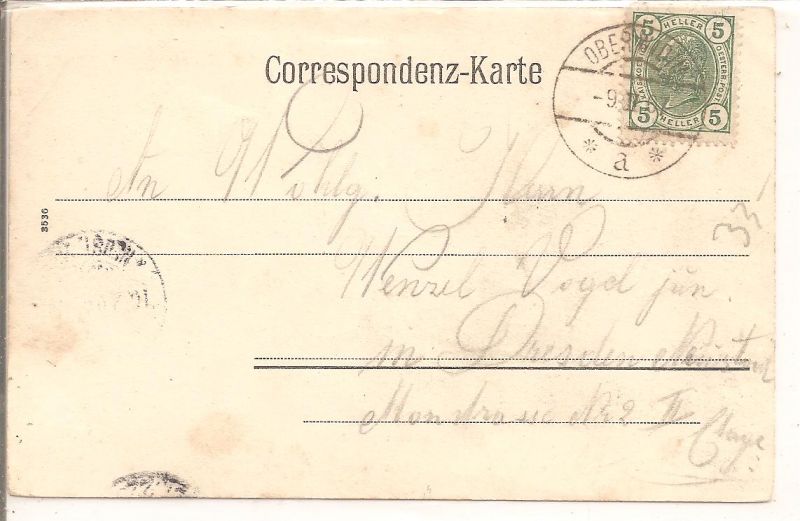 5 HELLER 5
KAIS. KOE OESTERR. POST.
5 HELLER 5
OBER
-9
* a *
Correspondenz-Karte
An Wohlg. Herrn
Wenzel Vogel jun.
in Dresden Neustad
No 2 II
Etage
33
3536